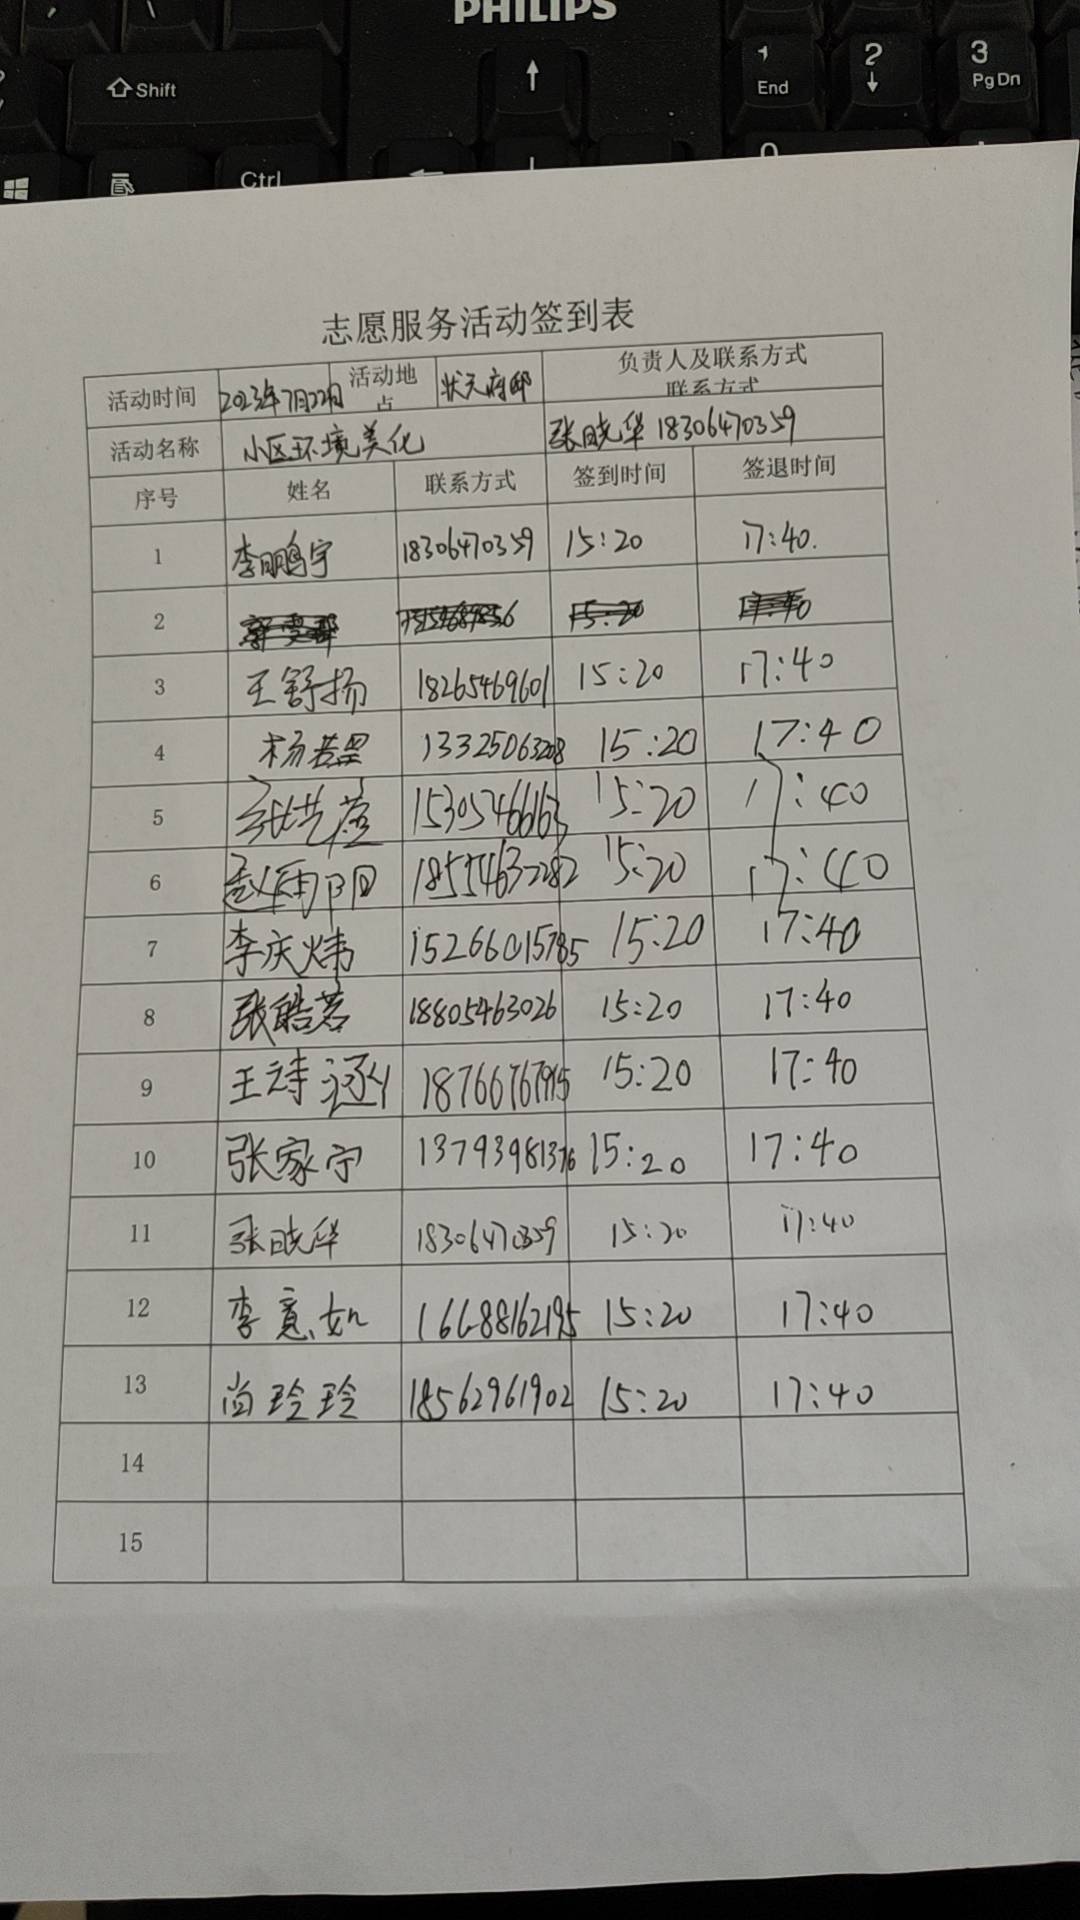 PHILIPS
Shift
1 End
2
3 PgDn
Ctrl
0
志愿服务活动签到表
活动时间 2023年7月22日 活动地点 状元府邸 负责人及联系方式
联系方式
活动名称 小区环境美化 张晓华 18306470359
序号 姓名 联系方式 签到时间 签退时间
1 李鹏宇 18306470359 15:20 17:40.
2 15:20
3 王舒扬 18265469601 15:20 17:40
4 杨若罡 13325063208 15:20 17:40
5 15305466163 15:20 17:40
6 赵雨阳 18554632282 15:20 17:40
7 李庆炜 15266015785 15:20 17:40
8 张皓茗 18805463026 15:20 17:40
9 王诗涵 18766767915 15:20 17:40
10 张家宁 13793981376 15:20 17:40
11 张晓华 18306470359 15:20 17:40
12 李意如 16688162195 15:20 17:40
13 尚玲玲 18562961902 15:20 17:40
14
15